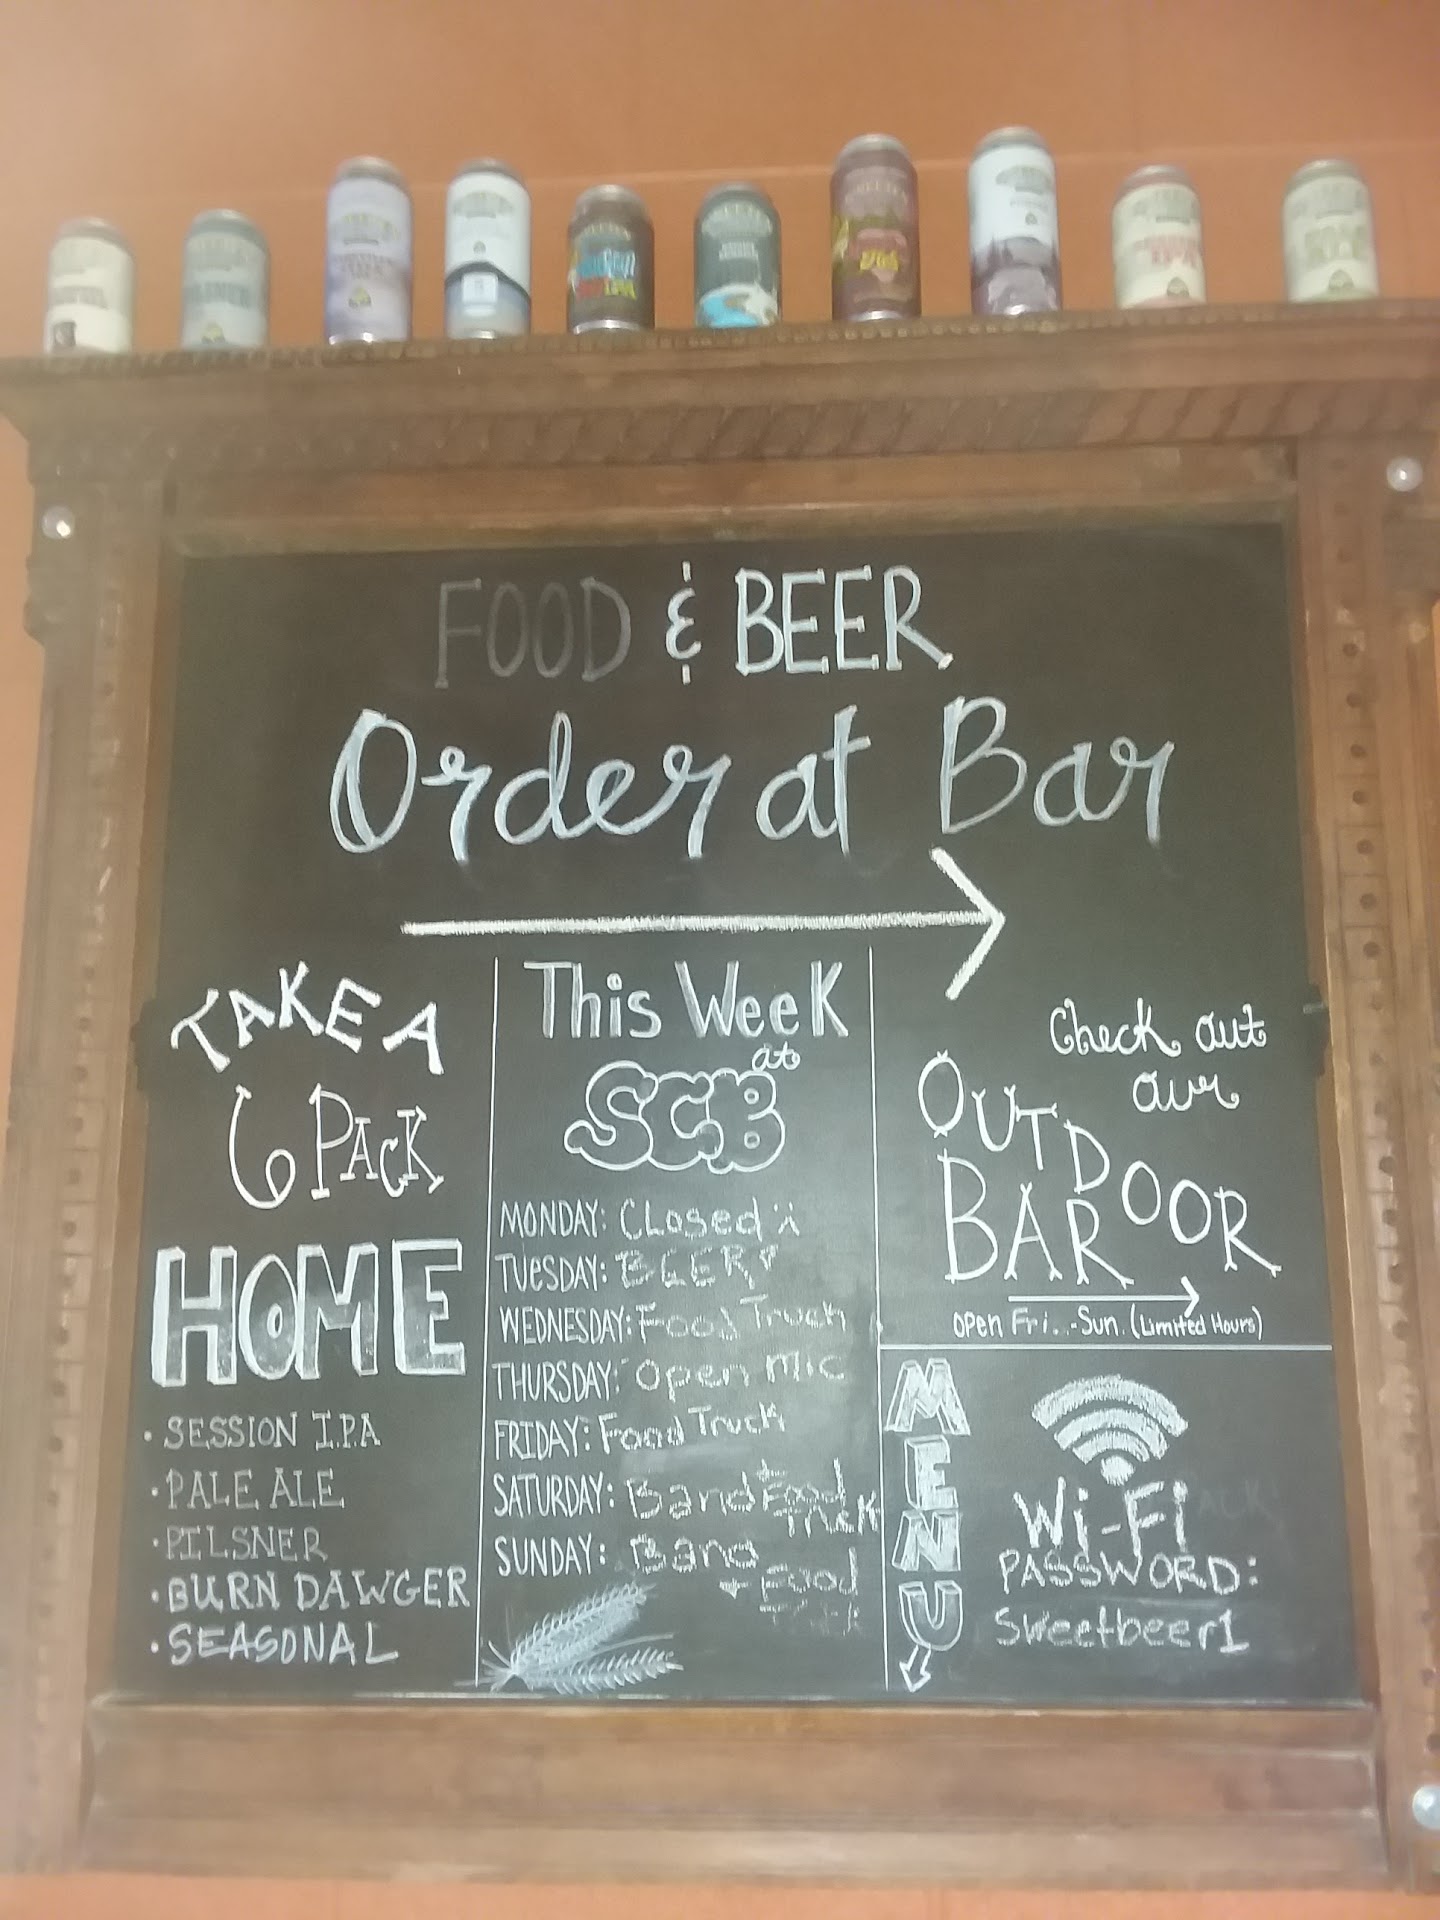 FOOD & BEER
Order at Bar
TAKE A
6 PACK
HOME
· SESSION I.P.A
· PALE ALE
· PILSNER
· BURN DAWGER
· SEASONAL
This Week
at
SCB
MONDAY: CLosed :(
TUESDAY: BEER!
WEDNESDAY: Food Truck
THURSDAY: Open Mic
FRIDAY: Food Truck
SATURDAY: Band + Food
Truck
SUNDAY: Band
+ Food
Check out
our
OUTDOOR
BAR
OPEN Fri..-Sun. (Limited Hours)
MENU
Wi-Fi
PASSWORD:
Sweetbeer1